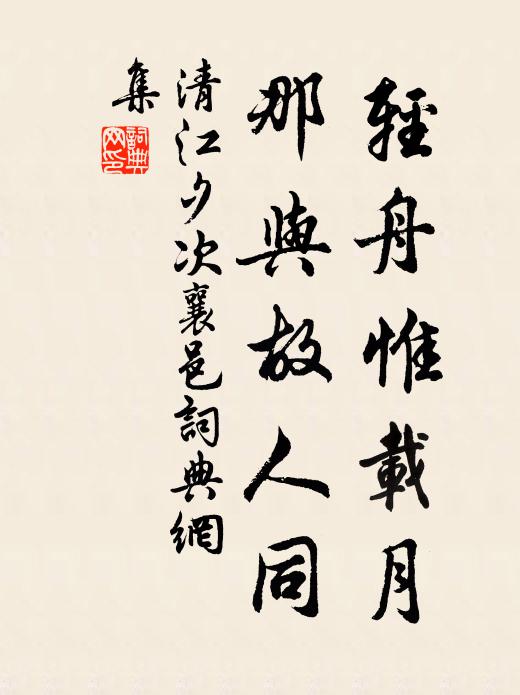 輕舟惟載月
那與故人同
清江夕次襄邑詞典網
集
詞典網印